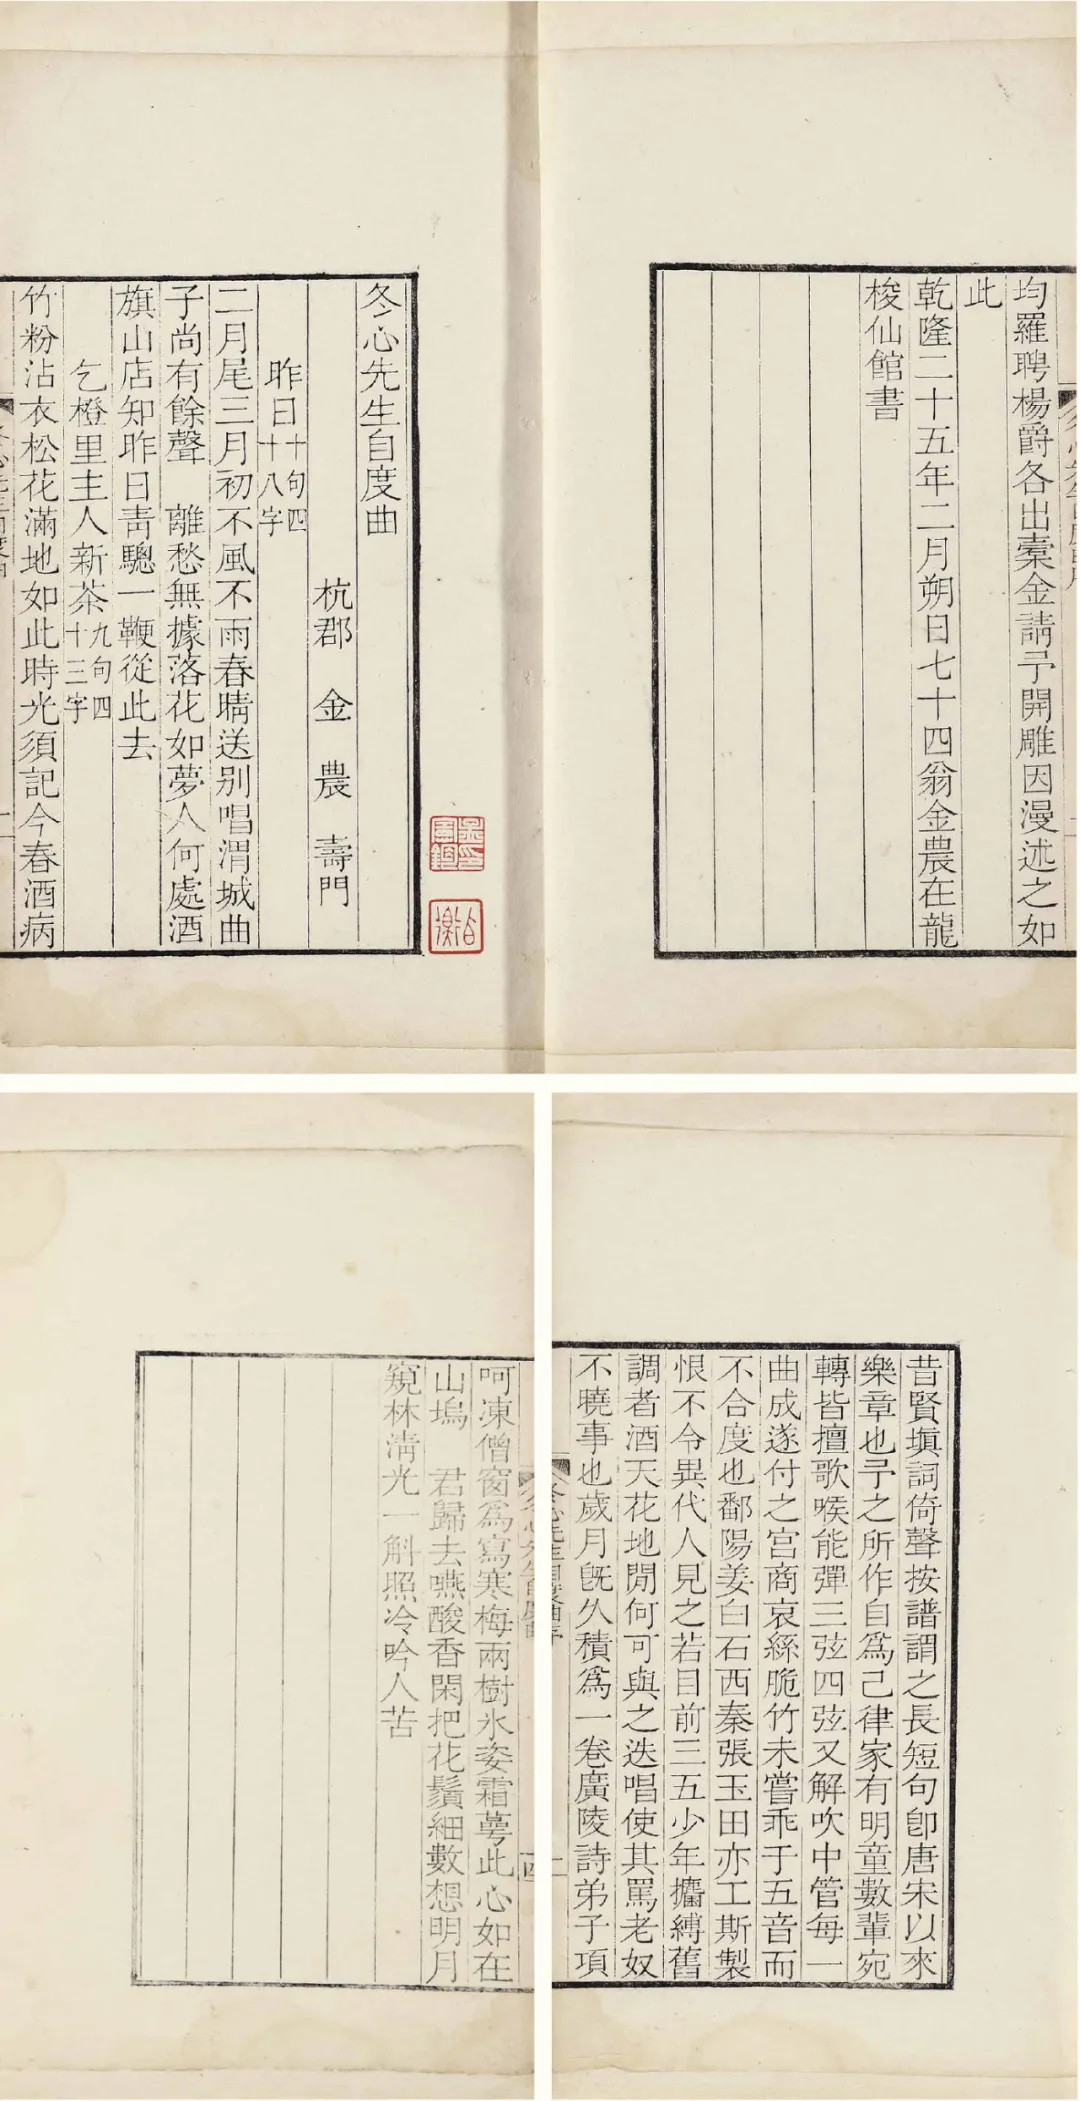 均羅聘楊爵各出橐金請予開雕因漫述之如
此
乾隆二十五年二月朔日七十四翁金農在龍
梭仙館書
冬心先生自度曲
杭郡 金 農 壽門
昨日十句四
十八字
二月尾三月初不風不雨春晴送别唱渭城曲
子尚有餘聲 離愁無據落花如夢人何處酒
旗山店知昨日靑驄一鞭從此去
乞橙里主人新茶九句四
十三字
竹粉沾衣松花滿地如此時光須記今春酒病
昔賢塡詞倚聲按譜謂之長短句卽唐宋以來
樂章也予之所作自爲己律家有明童數輩宛
轉皆擅歌喉能彈三弦四弦又解吹中管每一
曲成遂付之宫商哀絲脆竹未嘗乖于五音而
不合度也鄱陽姜白石西秦張玉田亦工斯製
恨不令異代人見之若目前三五少年攟縛舊
調者酒天花地閒何可與之迭唱使其罵老奴
不曉事也歲月旣久積爲一卷廣陵詩弟子項
冬心先生自度曲序
呵凍僧窗爲寫寒梅兩樹氷姿霜萼此心如在
山塢 君歸去嚥酸香閑把花鬚細數想明月
窺林淸光一斛照冷吟人苦
四